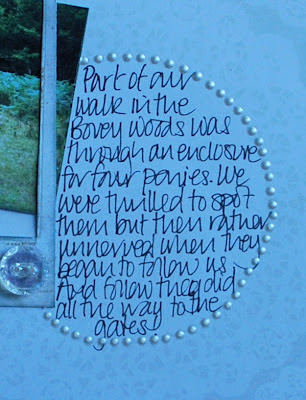 Part of our
walk in the
Bovey Woods was
through an enclosure
for four ponies. We
were thrilled to spot
them but then rather
unnerved when they
began to follow us
And follow they did
all the way to the
gates!